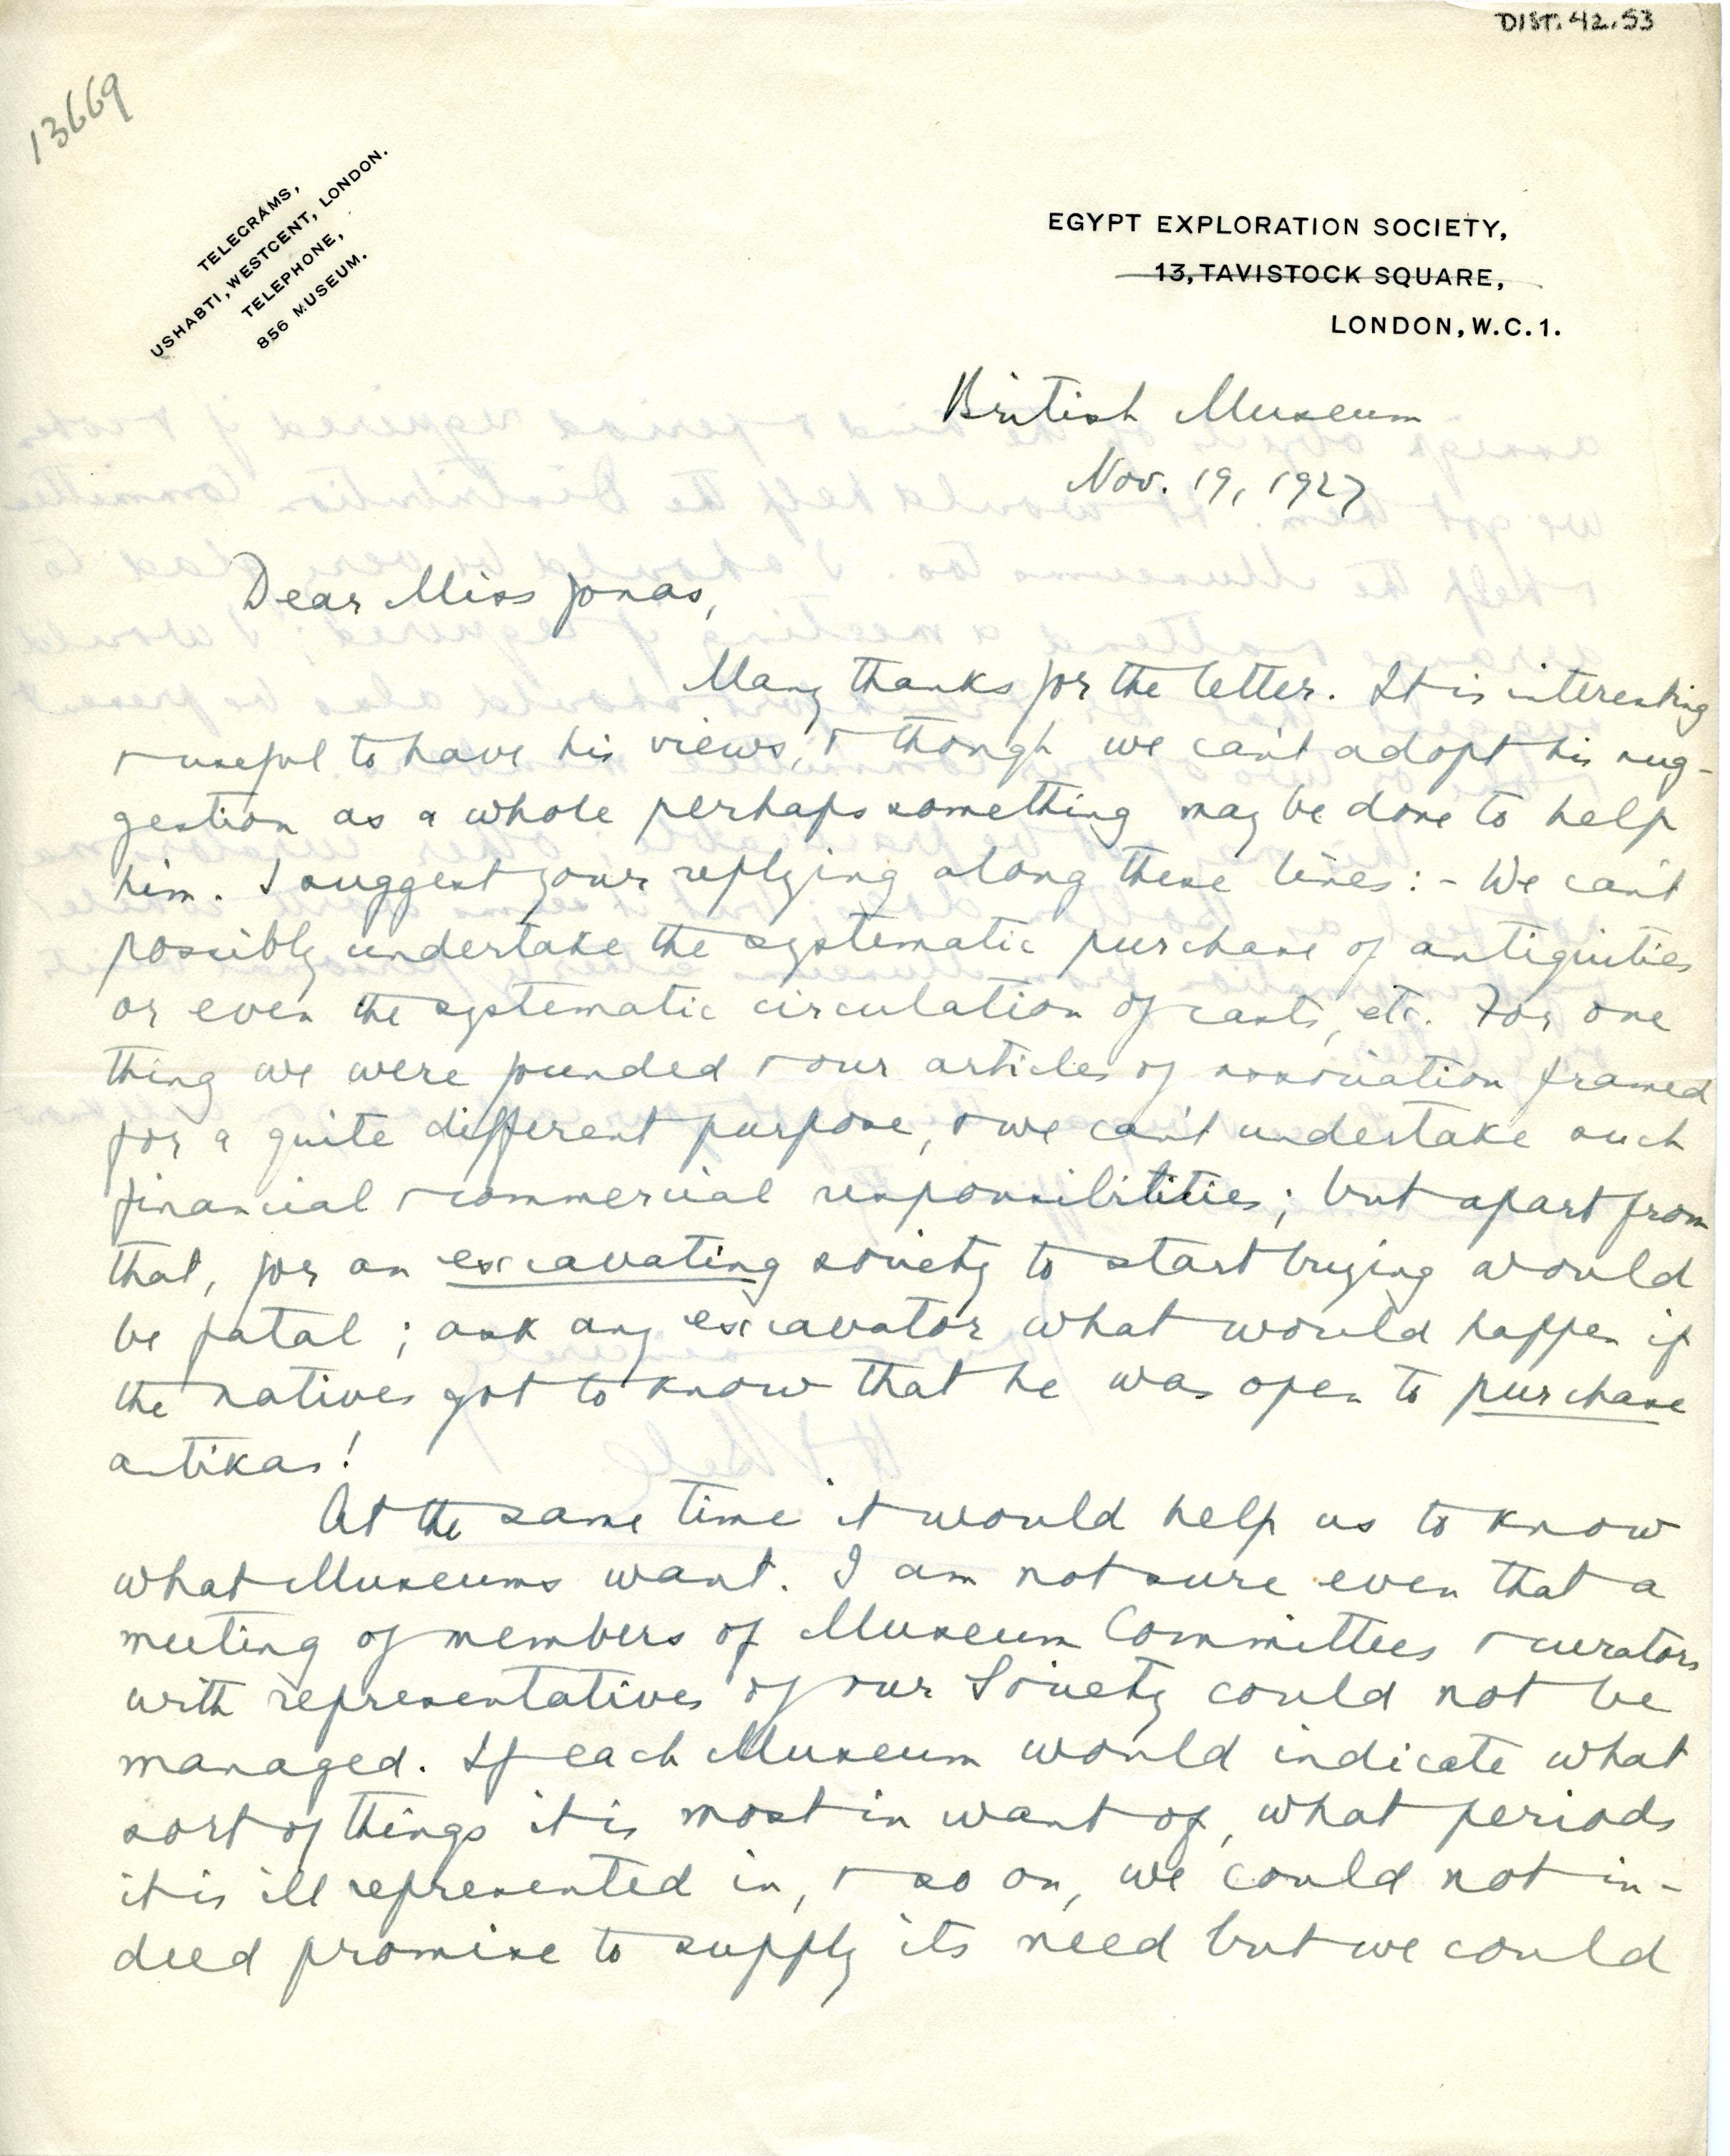 DIST. 42.53
13669
TELEGRAMS,
USHABTI, WESTCENT, LONDON.
TELEPHONE,
856 MUSEUM.
EGYPT EXPLORATION SOCIETY,
13, TAVISTOCK SQUARE,
LONDON, W.C.1.
British Museum
Nov. 19, 1927
Dear Miss Jonas,
Many thanks for the letter. It is interesting
& useful to have his views, & though we can't adopt his sug-
gestion as a whole perhaps something may be done to help
him. I suggest your replying along these lines: - We can't
possibly undertake the systematic purchase of antiquities
or even the systematic circulation of casts, etc. For one
thing we were founded & our articles of association framed
for a quite different purpose, & we can't undertake such
financial & commercial responsibilities; but apart from
that, for an excavating society to start buying would
be fatal; ask any excavator what would happen if
the natives got to know that he was open to purchase
antikas!
At the same time it would help us to know
what Museums want. I am not sure even that a
meeting of members of Museum Committees & curators
with representatives of our Society could not be
managed. If each Museum would indicate what
sort of things it is most in want of, what periods
it is ill represented in, & so on, we could not in-
deed promise to supply its need but we could